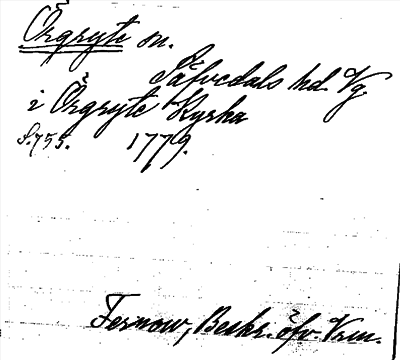 Örgryte sn.
Säfvedals hd. Vg.
i Örgryte Kyrka
S. 755. 1779.
Fernow, Beskr. öfv. Vrm.